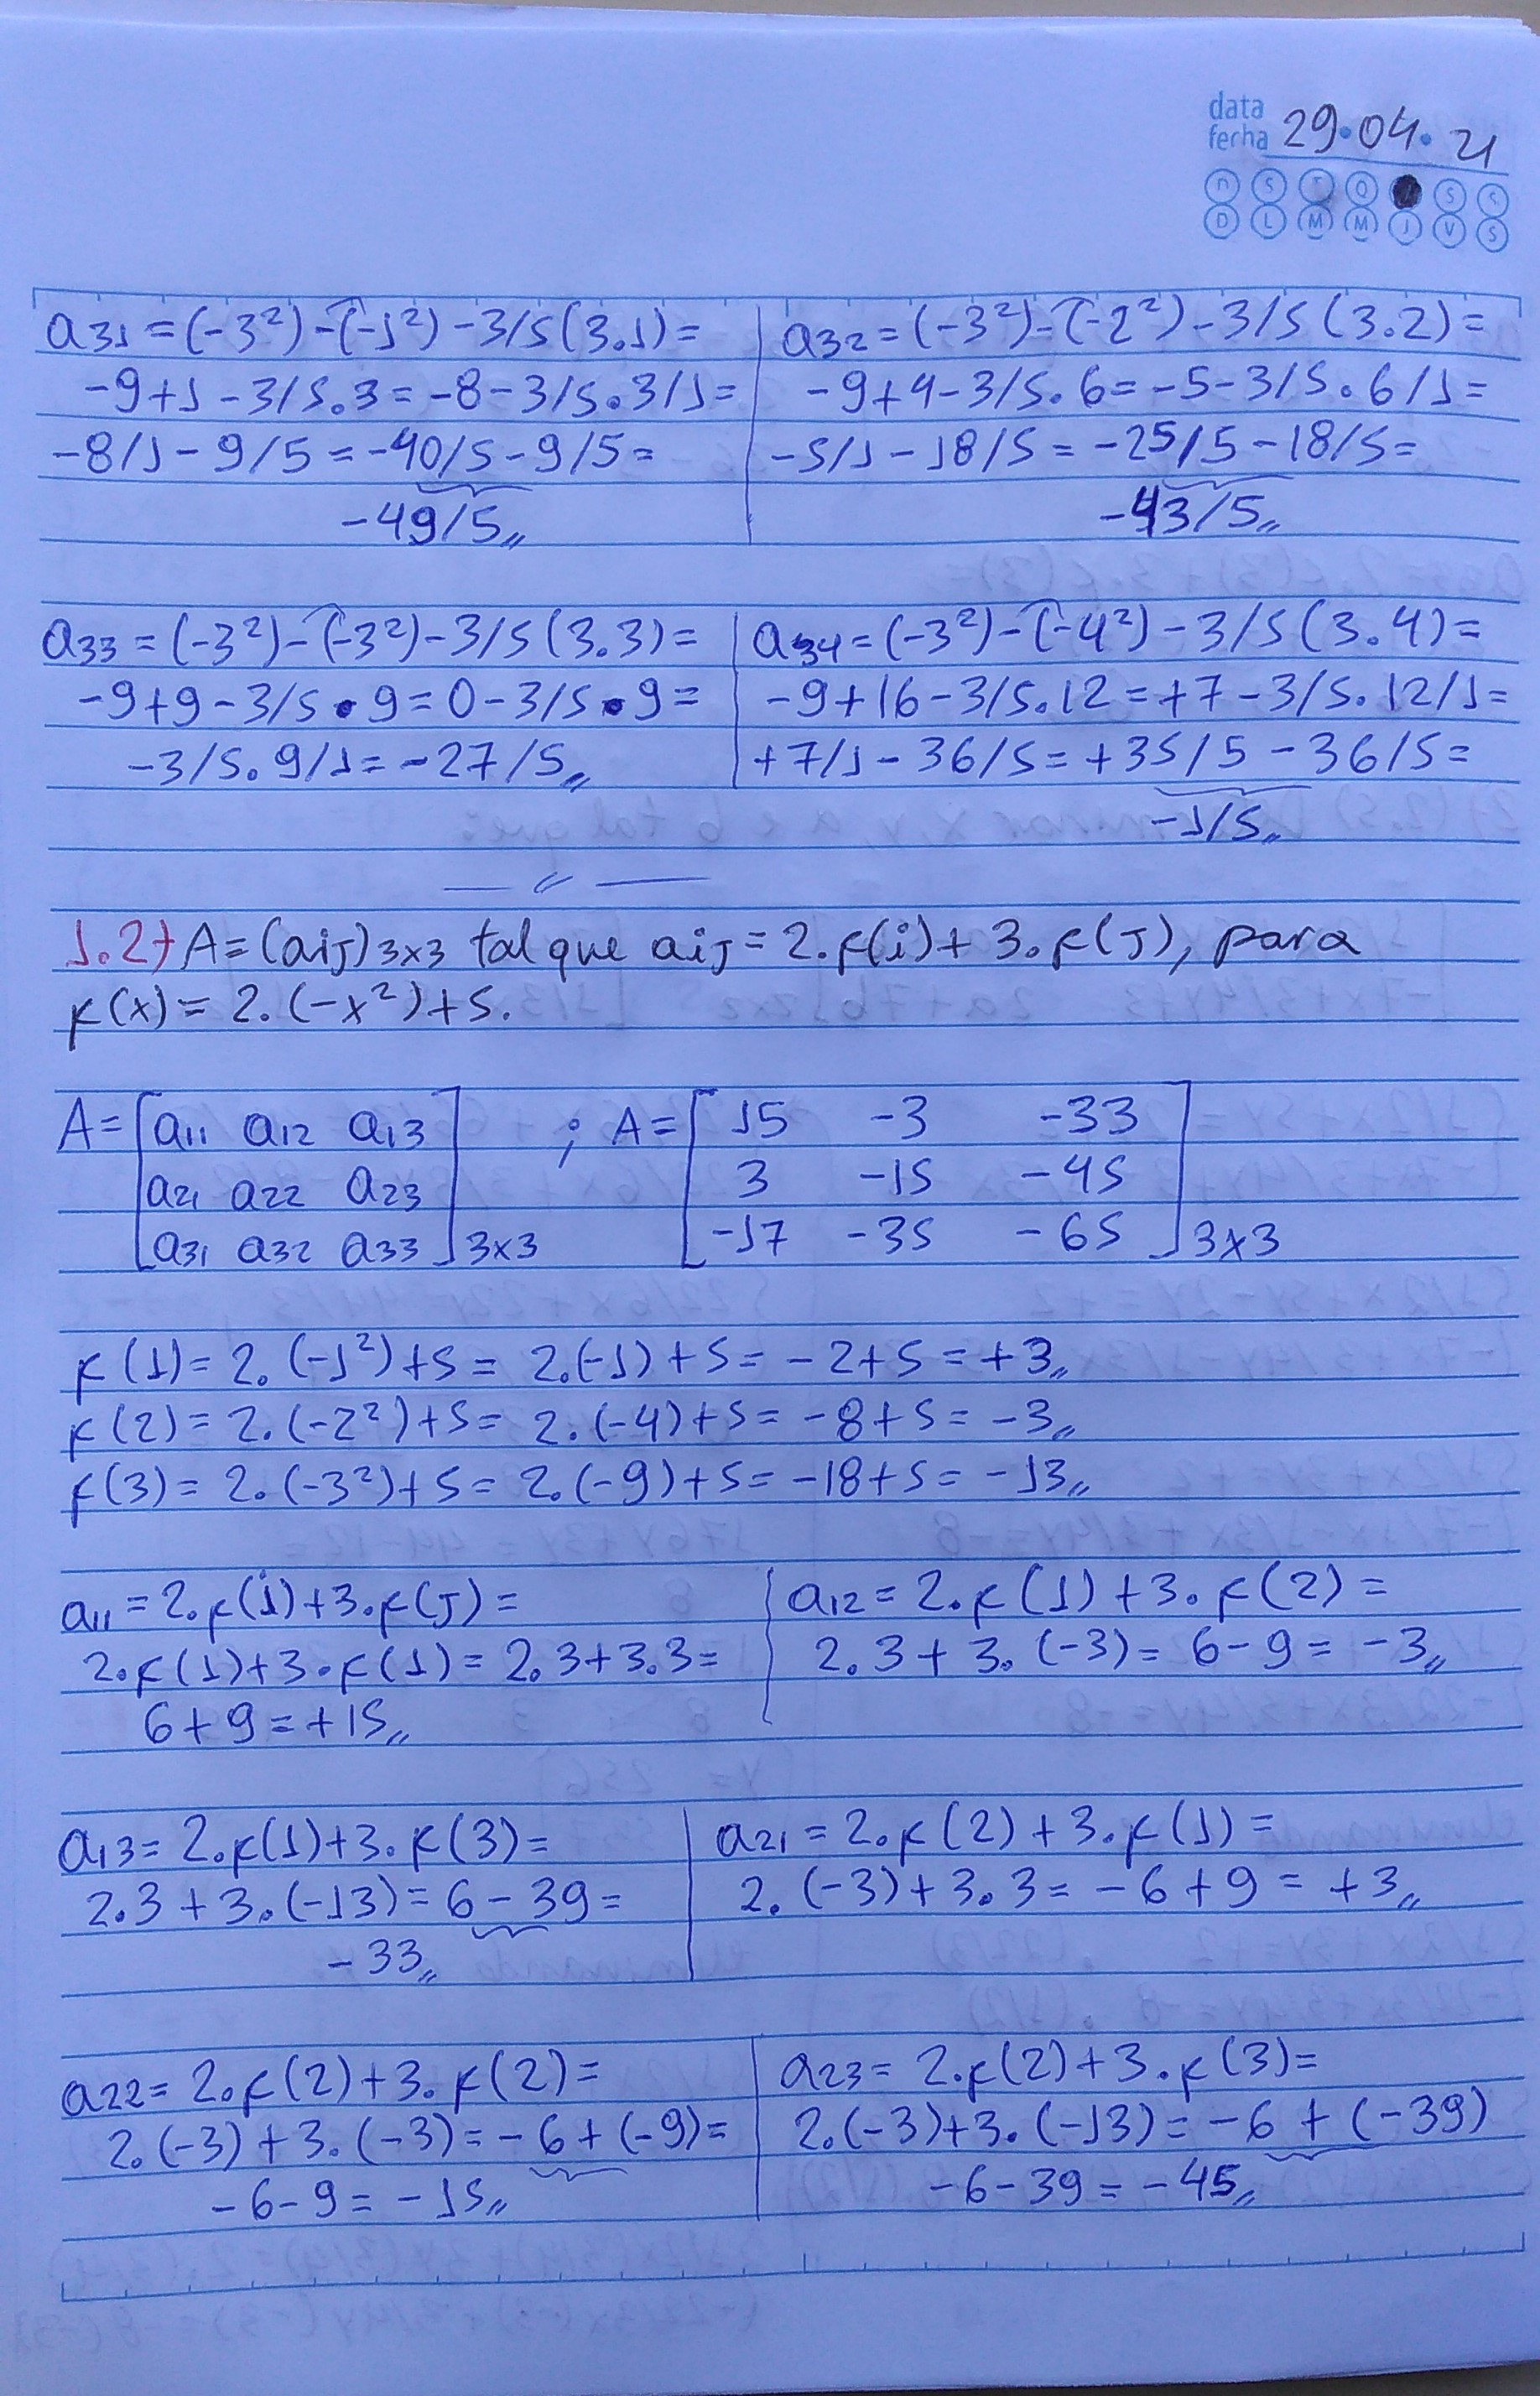 data
fecha 29.04.21
D S T Q Q S S
D L M M J V S
a31 = (-3²) - (-1²) - 3/5 (3.1) =
-9+1 - 3/5.3 = -8 - 3/5.3/1 =
-8/1 - 9/5 = -40/5 - 9/5 =
-49/5,,
a32 = (-3²) - (-2²) - 3/5 (3.2) =
-9+4 - 3/5.6 = -5 - 3/5.6/1 =
-5/1 - 18/5 = -25/5 - 18/5 =
-43/5,,
a33 = (-3²) - (-3²) - 3/5 (3.3) =
-9+9 - 3/5.9 = 0 - 3/5.9 =
-3/5.9/1 = -27/5,,
a34 = (-3²) - (-4²) - 3/5 (3.4) =
-9+16 - 3/5.12 = +7 - 3/5.12/1 =
+7/1 - 36/5 = +35/5 - 36/5 =
-1/5,,
— // —
1.2) A = (aij)3x3 tal que aij = 2.f(i) + 3.f(J), para
f(x) = 2.(-x²)+5.
A = [a11 a12 a13 ; A = [15 -3 -33]
a21 a22 a23 3 -15 -45
a31 a32 a33]3x3 -17 -35 -65 3x3
f(1) = 2.(-1²)+5 = 2.(-1)+5 = -2+5 = +3,,
f(2) = 2.(-2²)+5 = 2.(-4)+5 = -8+5 = -3,,
f(3) = 2.(-3²)+5 = 2.(-9)+5 = -18+5 = -13,,
a11 = 2.f(i)+3.f(J) =
2.f(1)+3.f(1) = 2.3+3.3 =
6+9 = +15,,
a12 = 2.f(1)+3.f(2) =
2.3+3.(-3) = 6-9 = -3,,
a13 = 2.f(1)+3.f(3) =
2.3+3.(-13) = 6-39 =
-33,,
a21 = 2.f(2)+3.f(1) =
2.(-3)+3.3 = -6+9 = +3,,
a22 = 2.f(2)+3.f(2) =
2.(-3)+3.(-3) = -6+(-9) =
-6-9 = -15,,
a23 = 2.f(2)+3.f(3) =
2.(-3)+3.(-13) = -6+(-39)
-6-39 = -45,,